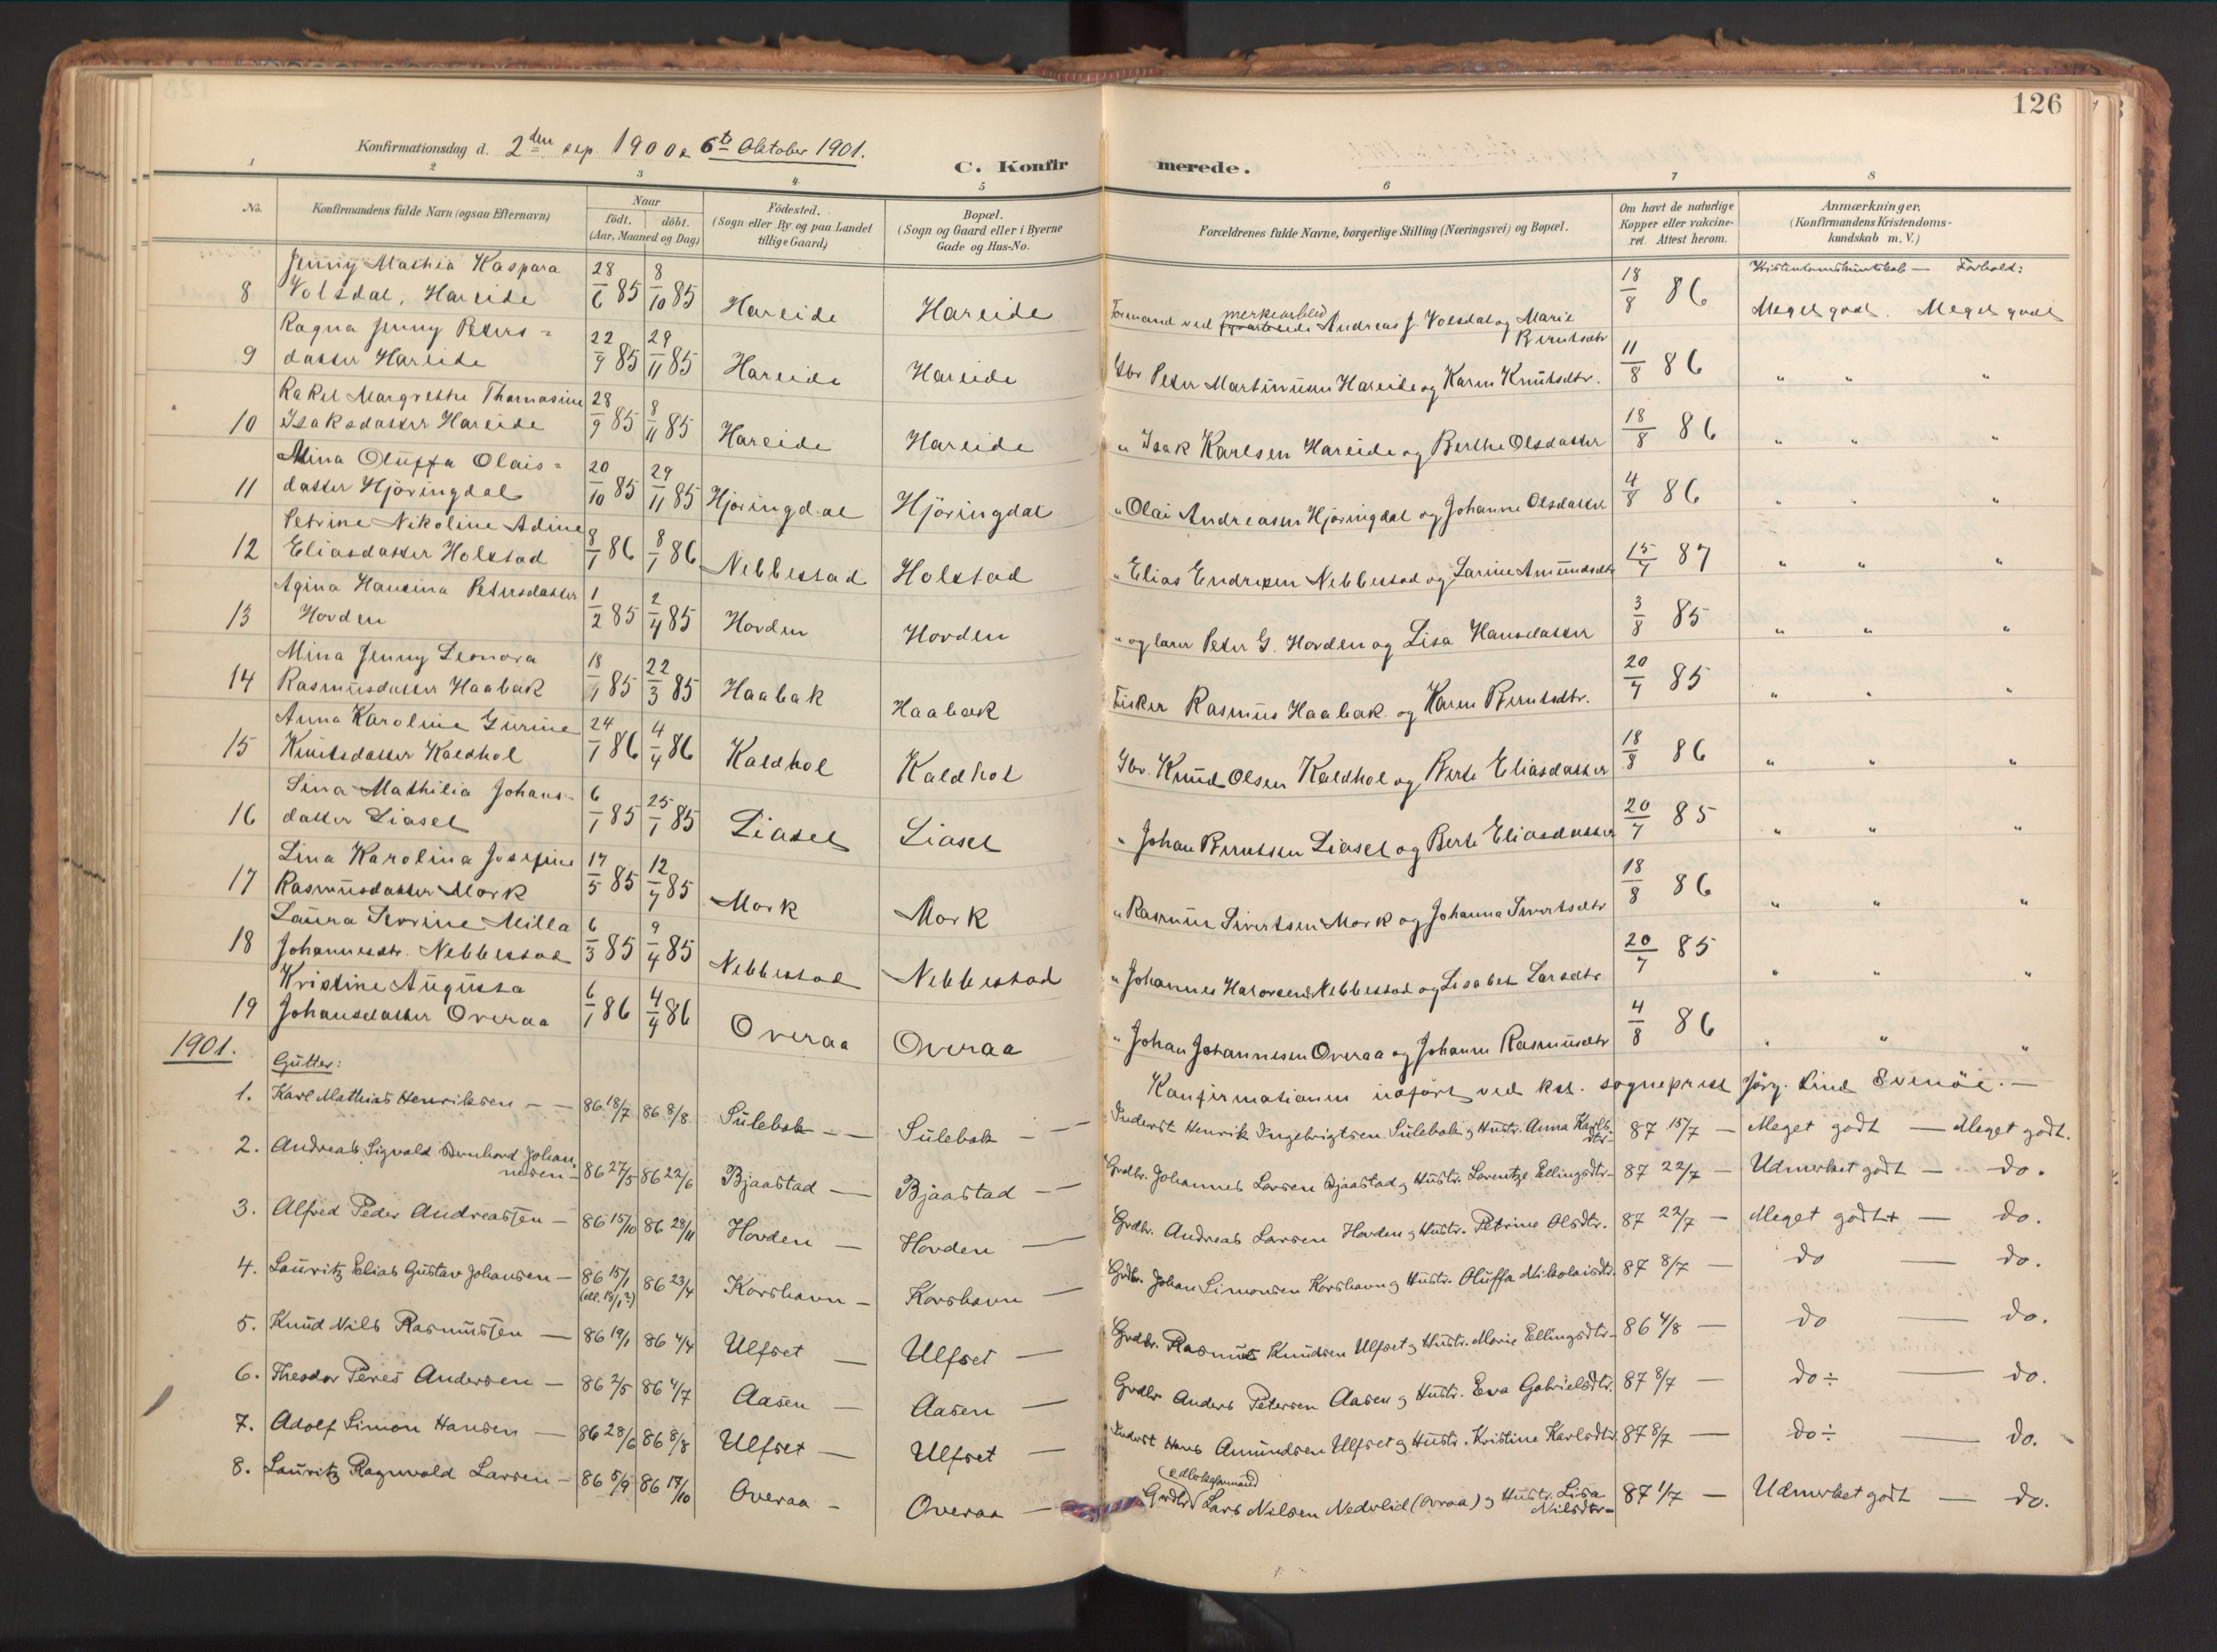 126
Konfirmationsdag d. 2den sep. 1900 & 6te Oktober 1901.
C. Konfirmerede.
1 2 3 4 5 6 7 8
No.
Konfirmandens fulde Navn (ogsaa Efternavn)
Naar
födt. döbt.
(Aar, Maaned og Dag)
Födested.
(Sogn eller By og paa Landet
tillige Gaard)
Bopæl.
(Sogn og Gaard eller i Byerne
Gade og Hus-No.
Forældrenes fulde Navne, borgerlige Stilling (Næringsvei) og Bopæl.
Om havt de naturlige
Kopper eller vakcine-
ret. Attest herom.
Anmærkninger.
(Konfirmandens Kristendoms-
kundskab m. V.)
Kristendomskundskab — Forhold:
Jenny Mathea Kaspara
8 Volsdal, Hareide 28/6 85 8/10 85 Hareide Hareide Formand ved merkearbeid Andreas J. Volsdal og Marie Berntsdtr 18/8 86 Meget godt. Meget godt
Ragna Jenny Peters=
9 datter Hareide 22/9 85 29/11 85 Hareide Hareide Gbr Peter Martinusen Hareide og Karen Knutsdtr. 11/8 86 " " "
Rakel Margrethe Thomasine
10 Isaksdatter Hareide 28/9 85 8/11 85 Hareide Hareide " Isak Karlsen Hareide og Berthe Olsdatter 18/8 86 " " "
Mina Oluffa Olais=
11 datter Hjöringdal 20/10 85 29/11 85 Hjöringdal Hjöringdal " Olai Andreasen Hjöringdal og Johanne Olsdatter 4/8 86 " " "
Petrine Nikoline Adine
12 Eliasdatter Holstad 8/1 86 8/1 86 Nebbestad Holstad " Elias Endresen Nebbestad og Larine Amundsdtr 15/7 87 " " "
Agina Hansina Petersdatter
13 Hovden 1/2 85 2/4 85 Hovden Hovden " og lærer Peter G. Hovden og Lisa Hansdatter 3/8 85 " " "
Mina Jenny Leonora
14 Rasmusdatter Haabak 18/1 85 22/3 85 Haabak Haabak Fisker Rasmus Haabak og Karen Berntsdtr. 20/7 85 " " "
Anna Karoline Gurine
15 Knutsdatter Kaldhol 24/1 86 4/4 86 Kaldhol Kaldhol Gbr. Knud Olsen Kaldhol og Berte Eliasdatter 18/8 86 " " "
Sina Mathilia Johans-
16 datter Liaset 6/1 85 25/1 85 Liaset Liaset " Johan Berntsen Liaset og Berte Eliasdatter 20/7 85 " " "
Lina Karolina Josefine
17 Rasmusdatter Mork 17/5 85 12/7 85 Mork Mork " Rasmus Sivertsen Mork og Johanna Sivertsdtr 18/8 86 " " "
Laura Severine Milla
18 Johannesdtr. Nebbestad 6/3 85 9/4 85 Nebbestad Nebbestad " Johannes Nebbestad og Lisabet Larsdtr 20/7 85 " " "
Kristine Augusta
19 Johansdatter Overaa 6/1 86 4/4 86 Overaa Overaa " Johan Johannesen Overaa og Johanne Rasmusdtr 4/8 86 " " "
1901. Gutter: Konfirmationen udfört ved kst. sogneprest Jörg. Lind Svenöe. —
1. Karl Mathias Henriksen — — 86 18/7 86 8/8 Sulebak — — Sulebak — — Inderst Henrik Ingebrigtsen Sulebak og Hustr. Anna Karlsdtr- 87 15/7 — Meget godt — Meget godt.
2. Andreas Sigvald Bernhard Johannesen — 86 27/5 86 22/6 Bjaastad — Bjaastad — — Grdbr. Johannes Larsen Bjaastad og Hustr. Lorentze Ellingsdtr- 87 22/7 — Udmerket godt — do.
3. Alfred Peder Andreassen — 86 15/10 86 28/11 Hovden — Hovden — Grdbr. Andreas Larsen Hovden og Hustr. Petrine Olsdtr. 87 22/7 — Meget godt + — do.
4. Lauritz Elias Gustav Johansen — 86 15/1 (ell. 18/1?) 86 23/4 Korshavn — Korshavn — Grdbr. Johan Simonsen Korshavn og Hustr. Oluffa Nikolaisdtr. 87 8/7 — do — do.
5. Knud Nils Rasmussen — 86 19/1 86 4/4 Ulfset — Ulfset — Grdbr. Rasmus Knudsen Ulfset og Hustr. Marie Ellingsdtr- 86 4/8 — do — do.
6. Theodor Peres Andersen — 86 2/5 86 4/7 Aasen — Aasen — Grdbr Anders Petersen Aasen og Hustr. Eva Gabrielsdtr. 87 8/7 — do ÷ — do.
7. Adolf Simon Hansen — 86 28/6 86 8/8 Ulfset — Ulfset — Inderst Hans Amundsen Ulfset og Hustr. Kristine Karlsdtr. 87 8/7 — do ÷ — do.
8. Lauritz Ragnvald Larsen — 86 5/9 86 17/10 Overaa — Overaa — Grdbr Lars Nilsen Nedrelid (Ovraa) og Hustr. Lisa Nilsdtr- 87 1/7 — Udmerket godt — do.